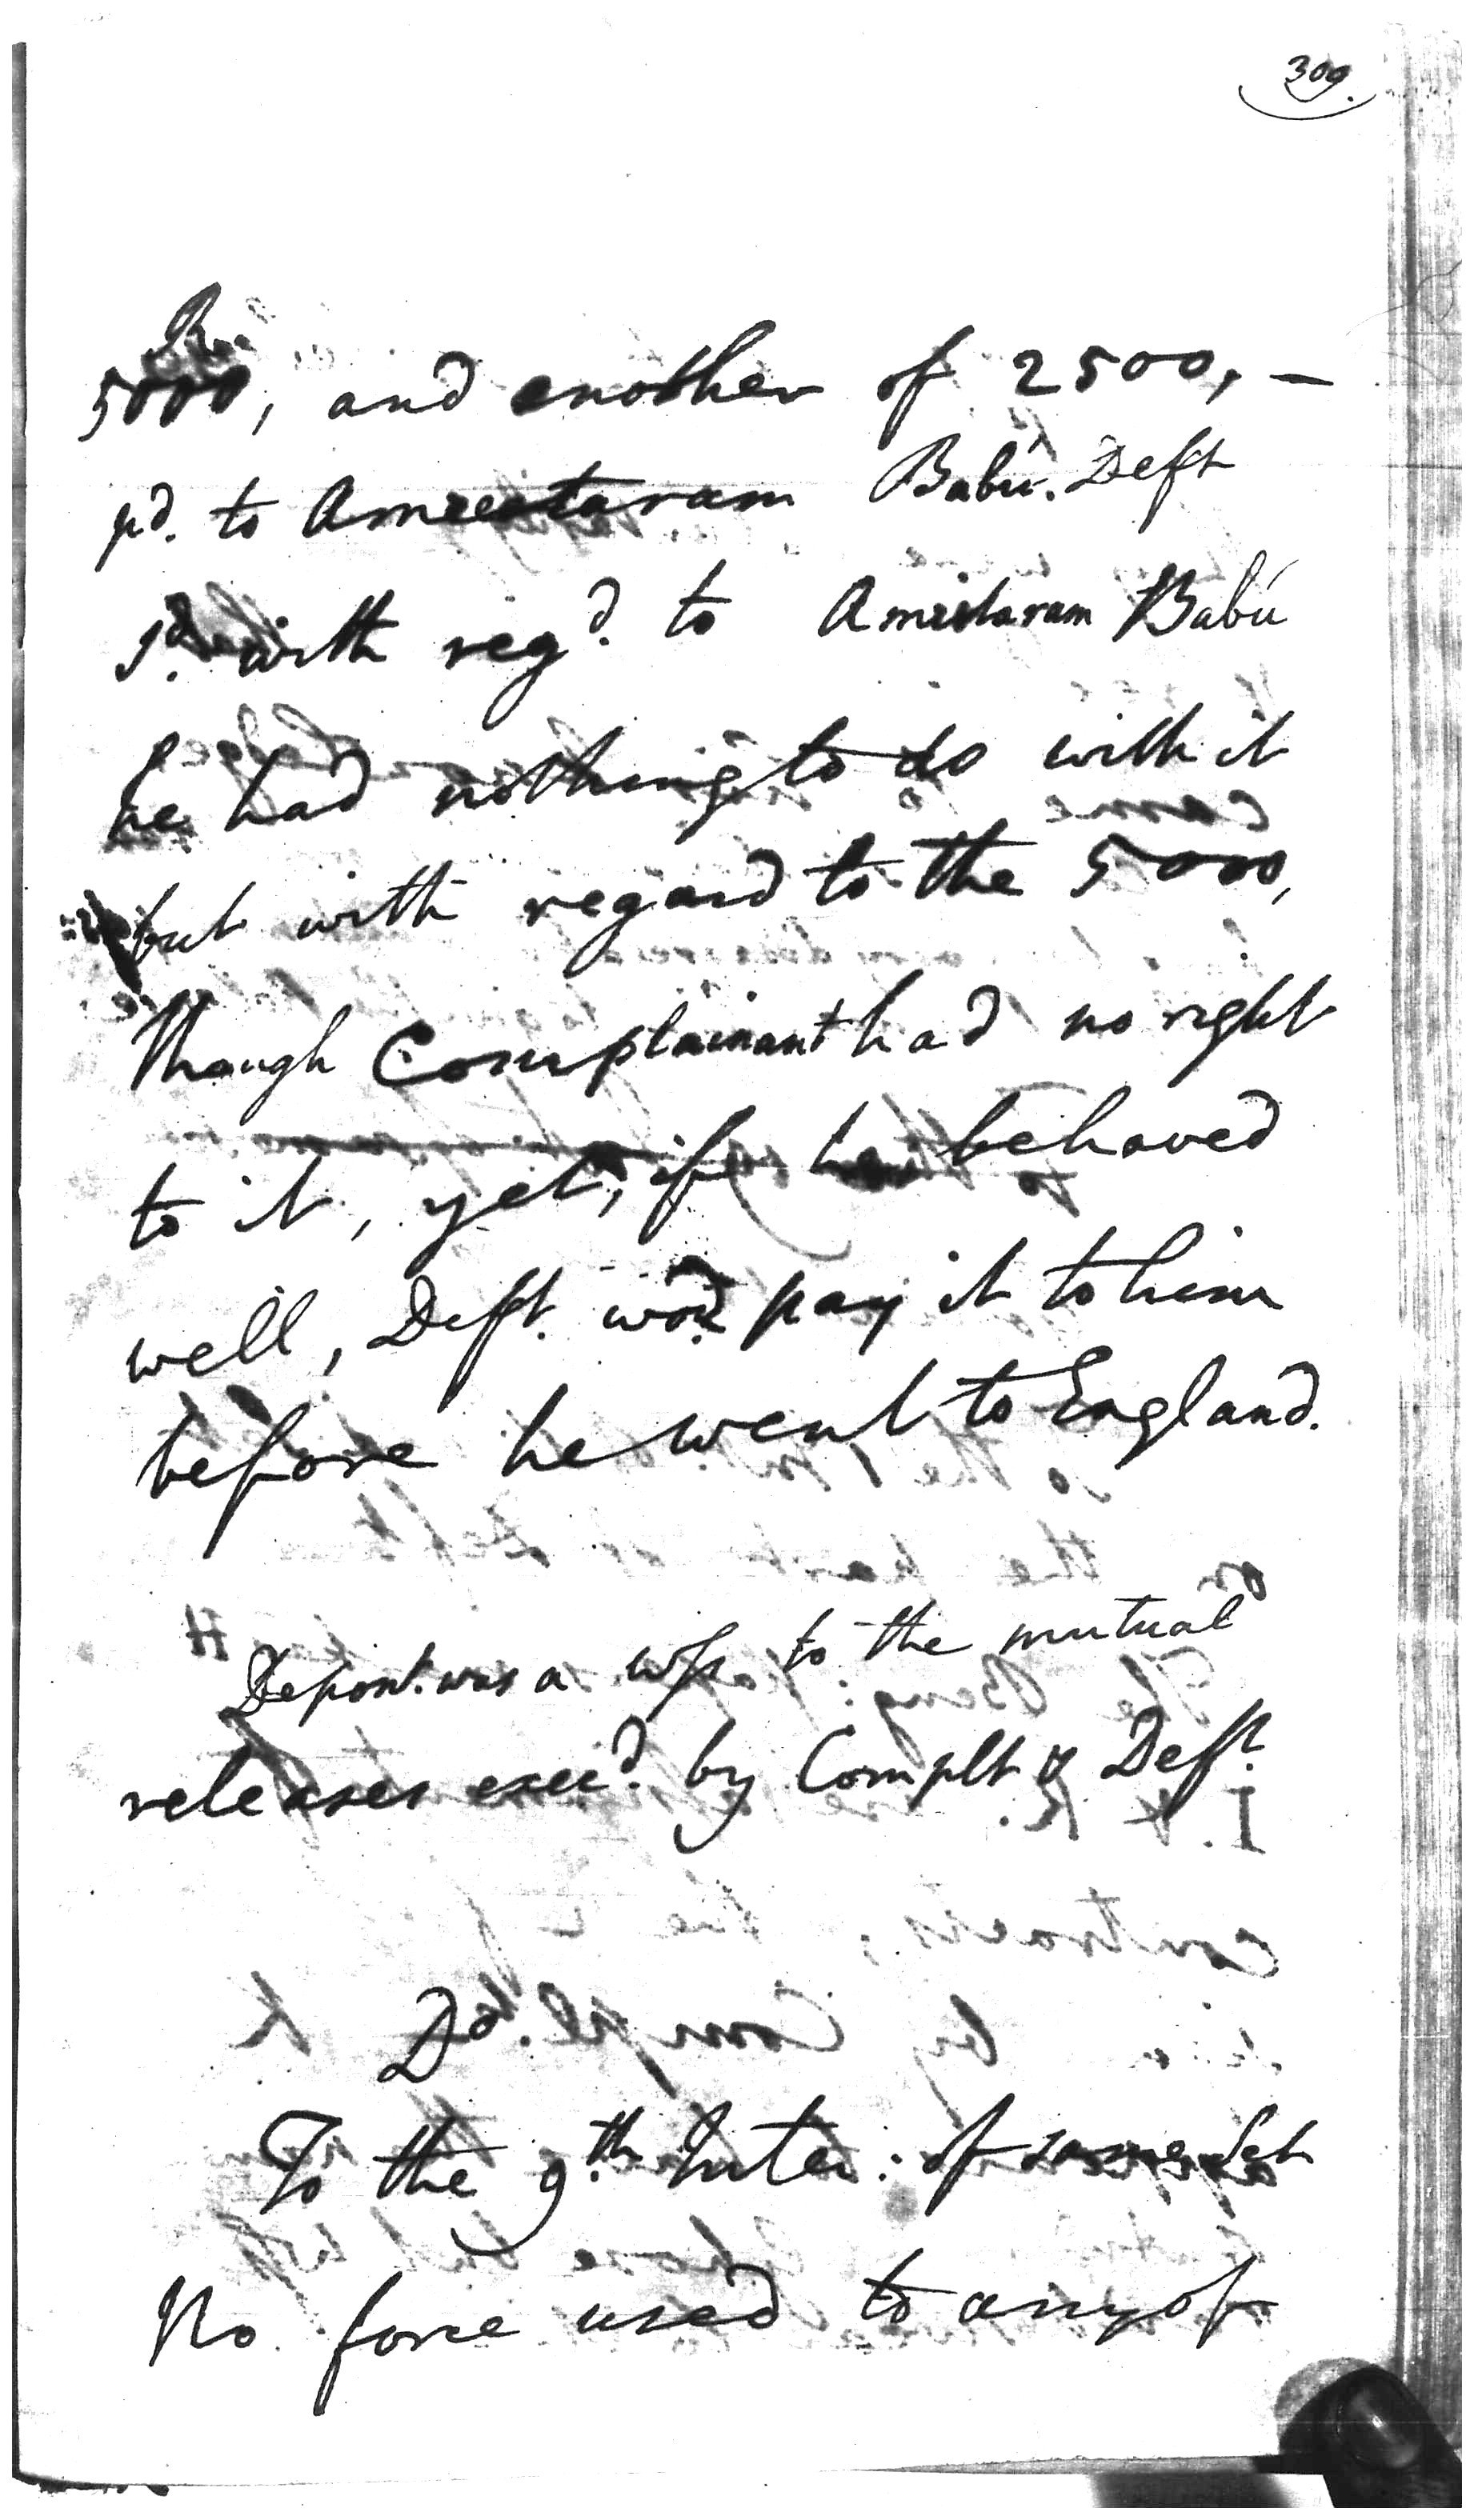 309.
Rs.
5000, and another of 2500, —
pd. to Amreetaram Babú. Deft
sd. with regd. to Amritaram Babú
he had nothing to do with it
but with regard to the 5000,
though Complainant had no right
to it, yet, if he behaved
well, Deft. wod. pay it to him
before he went to England.
Depont. was a wss to the mutual
releases exec'd. by Complt & Deft.
Do.
To the 9th Inter: of same Set
No force used to any of